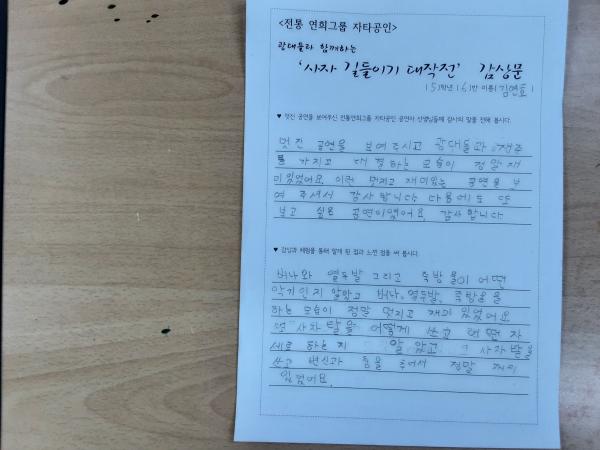 <전통 연희그룹 자타공인>
광대들과 함께하는
'사자 길들이기 대작전' 감상문
( 5 )학년 ( 6 )반 이름( 김연호 )
♥ 멋진 공연을 보여주신 전통연희그룹 자타공인 공연자 선생님들께 감사의 말을 전해 봅시다.
멋진 공연을 보여 주시고 광대들과 재주
를 가지고 대결하는 모습이 정말 재
미있었어요. 이런 멋지고 재미있는 공연을 보
여 주셔서 감사합니다. 다음에도 또
보고 싶은 공연이였어요. 감사합니다
♥ 감상과 체험을 통해 알게 된 점과 느낀 점을 써 봅시다.
버나와 열두발 그리고 죽방울이 어떤
악기인지 알았고 버나, 열두발, 죽방울을
하는 모습이 정말 멋지고 재미있었어요
사자탈을 어떻게 쓰고 어떤 자
세로 하는지 알았고 사자탈을
쓰고 변신과 춤을 추어서 정말 재미
있었어요.